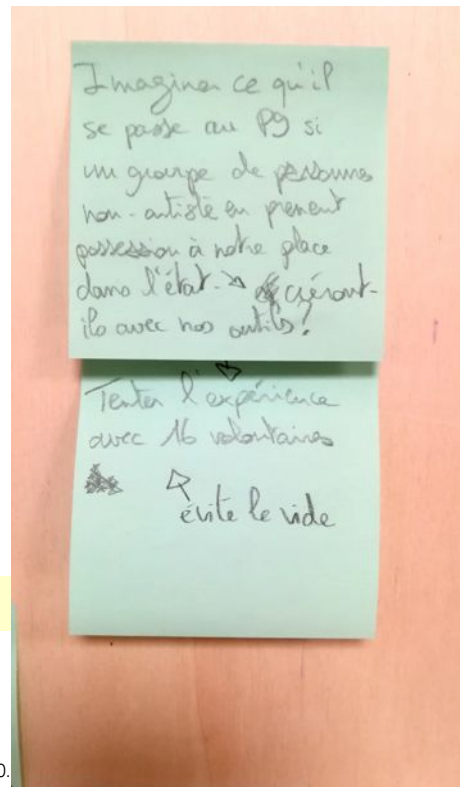 Imaginer ce qu'il
se passe au P9 si
un groupe de personnes
non-artiste en prenent
possession à notre place
dans l'état. → créront-
ils avec nos outils?
Tenter l'expérience
avec 16 volontaires
évite le vide
0.